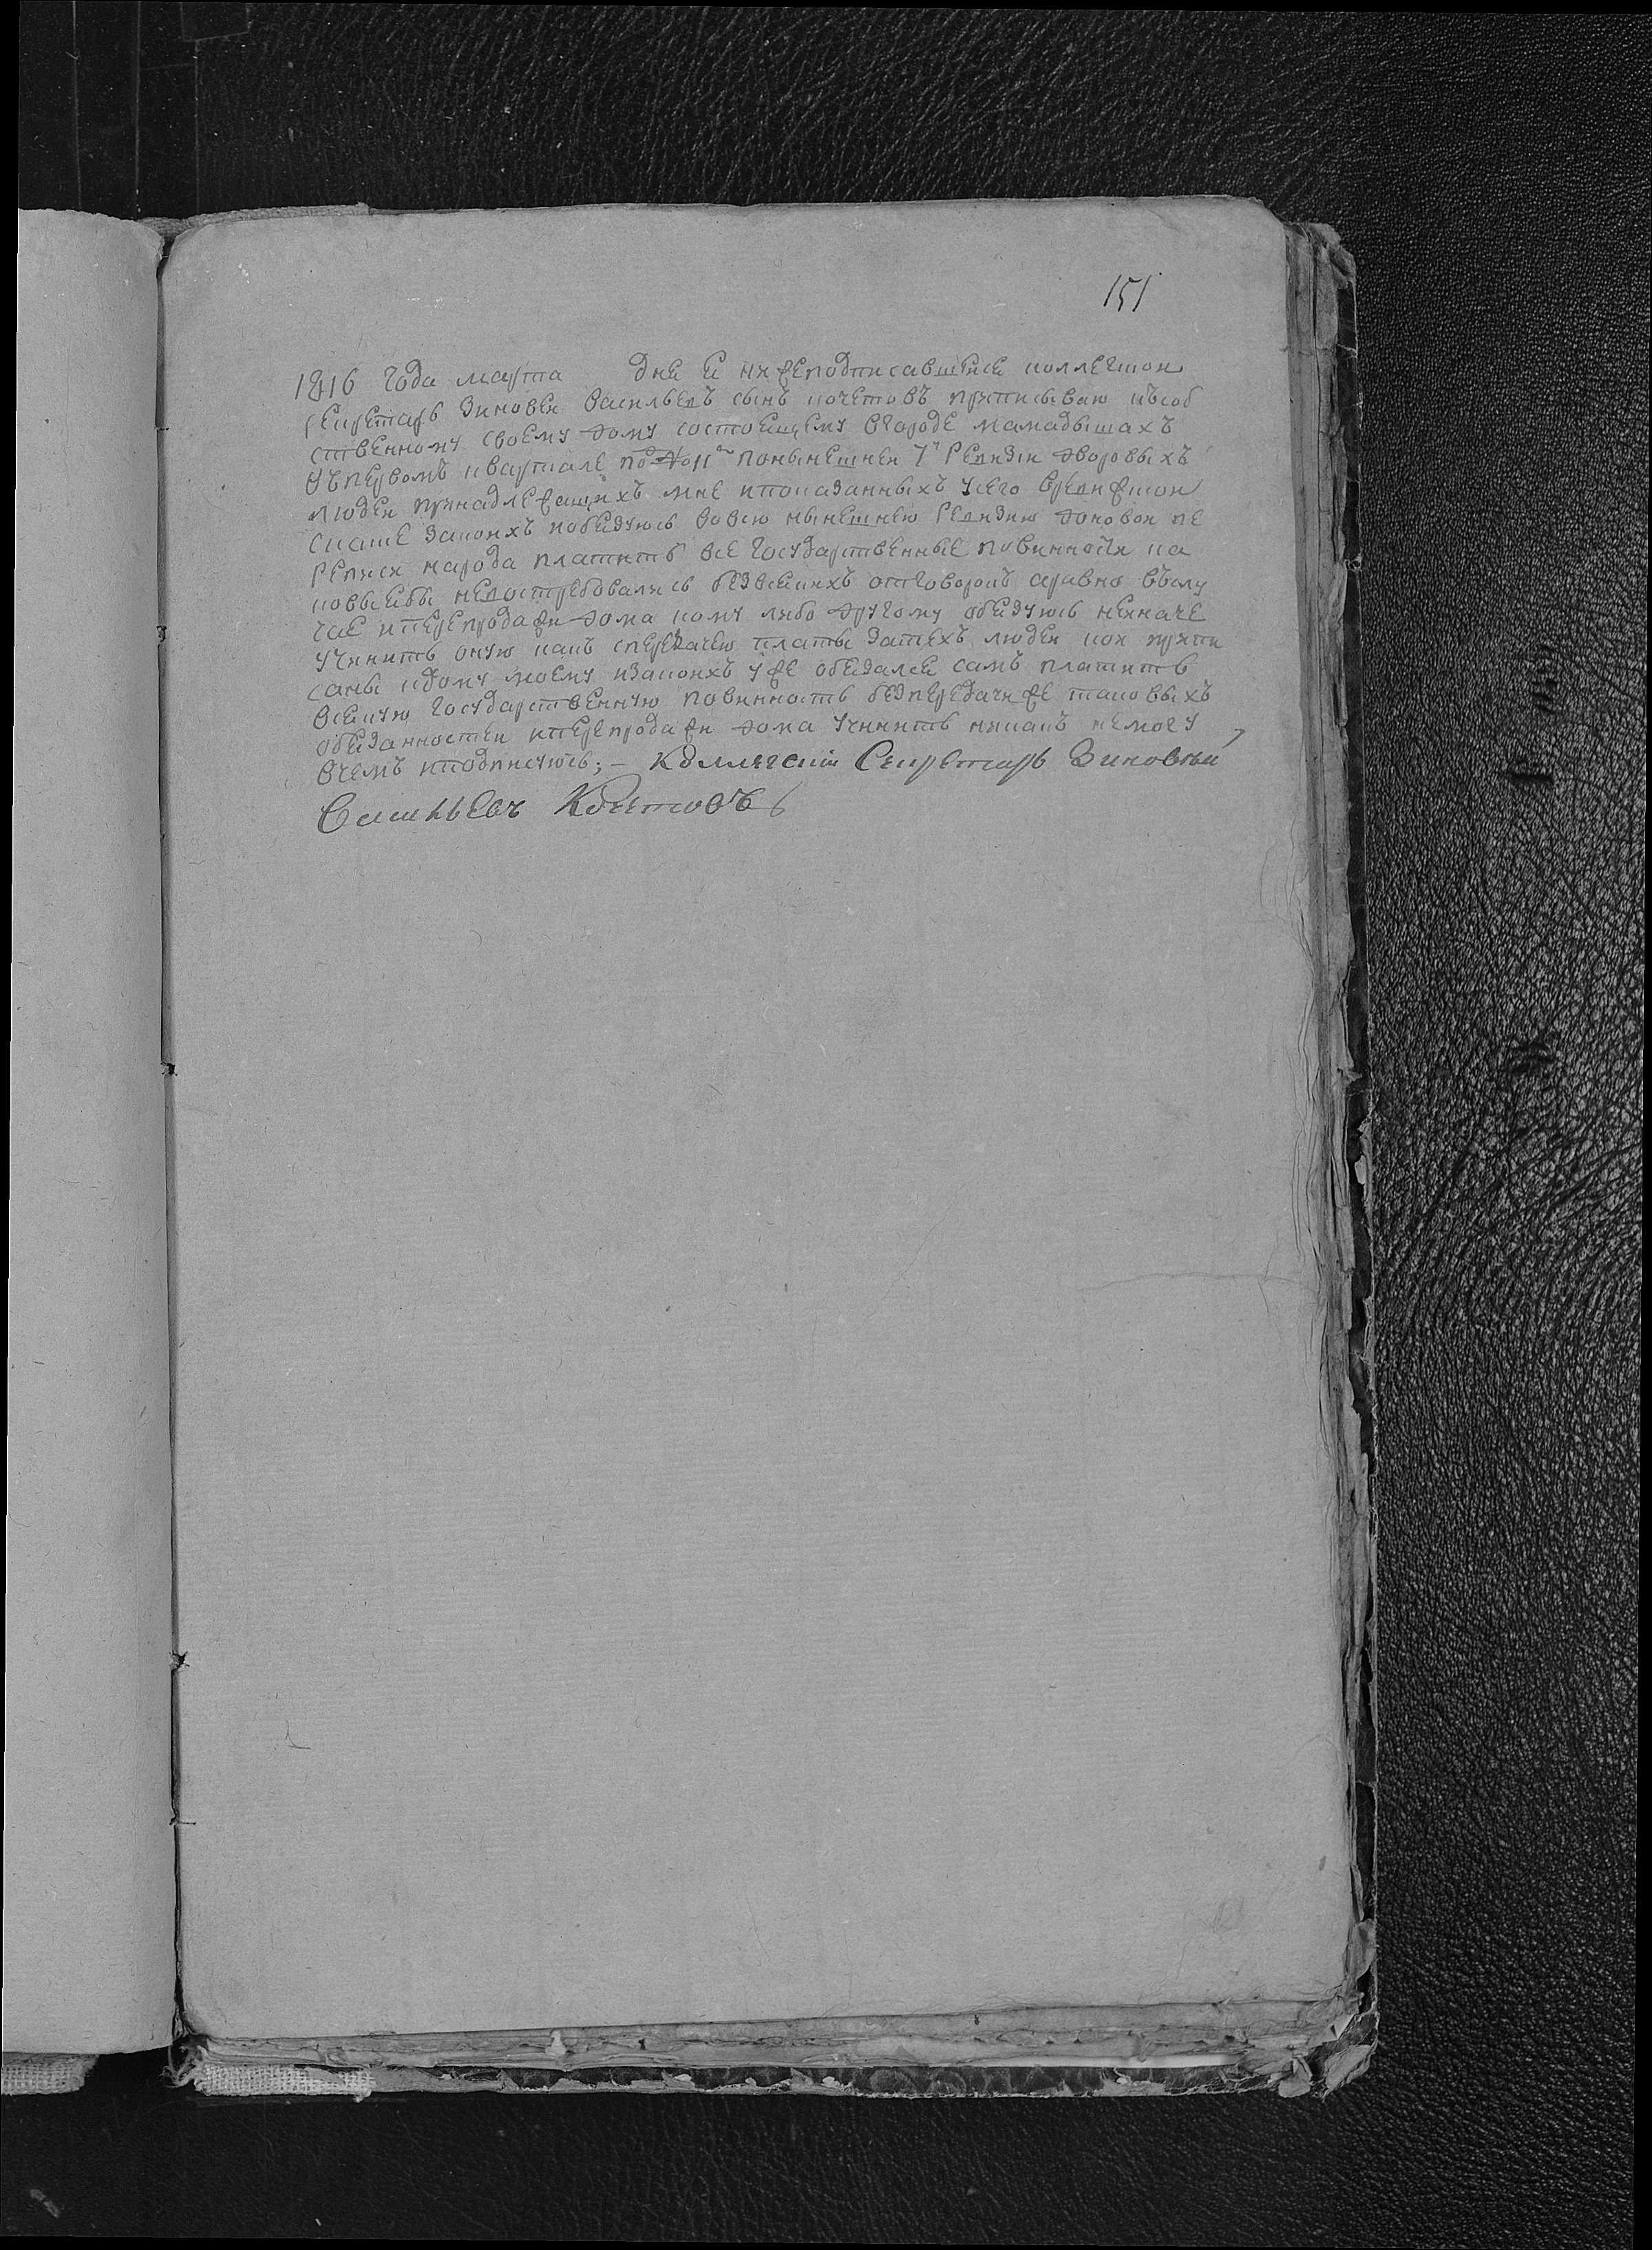 151
1816 года марта дня я нижеподписавшейся коллегской
секретарь Зиновей Васильевъ сынъ Кочетовъ приписываю ксоб
ственному своему дому состоящему вгороде мамадышахъ
въпервомъ квартале по № 11м понынешней 7й Ревизіи дворовыхъ
людей принадлежащихъ мне ипоказанныхъ усего
закоихъ пообязуюсь вовсю нынешнею Ревизию доновой пе
реписи народа платить все Государственные повинности ка
ковыебы непостребовались безвсякихъ отговорокъ аравно вслу
чае иперепродажи дома кому либо другому обязуюсь неиначе
учинить оную какъ спередачею платы затехъ людей кои припи
саны кдому моему изакоихъ уже обязался самъ платить
всякую Государственную повинность безпередачиже таковыхъ
обязанностей иперепродажи дома учинить никакъ немогу
вчемъ иподписуюсь; – Коллегскій Секретарь Зиновей
Васильевъ Кочетовъ